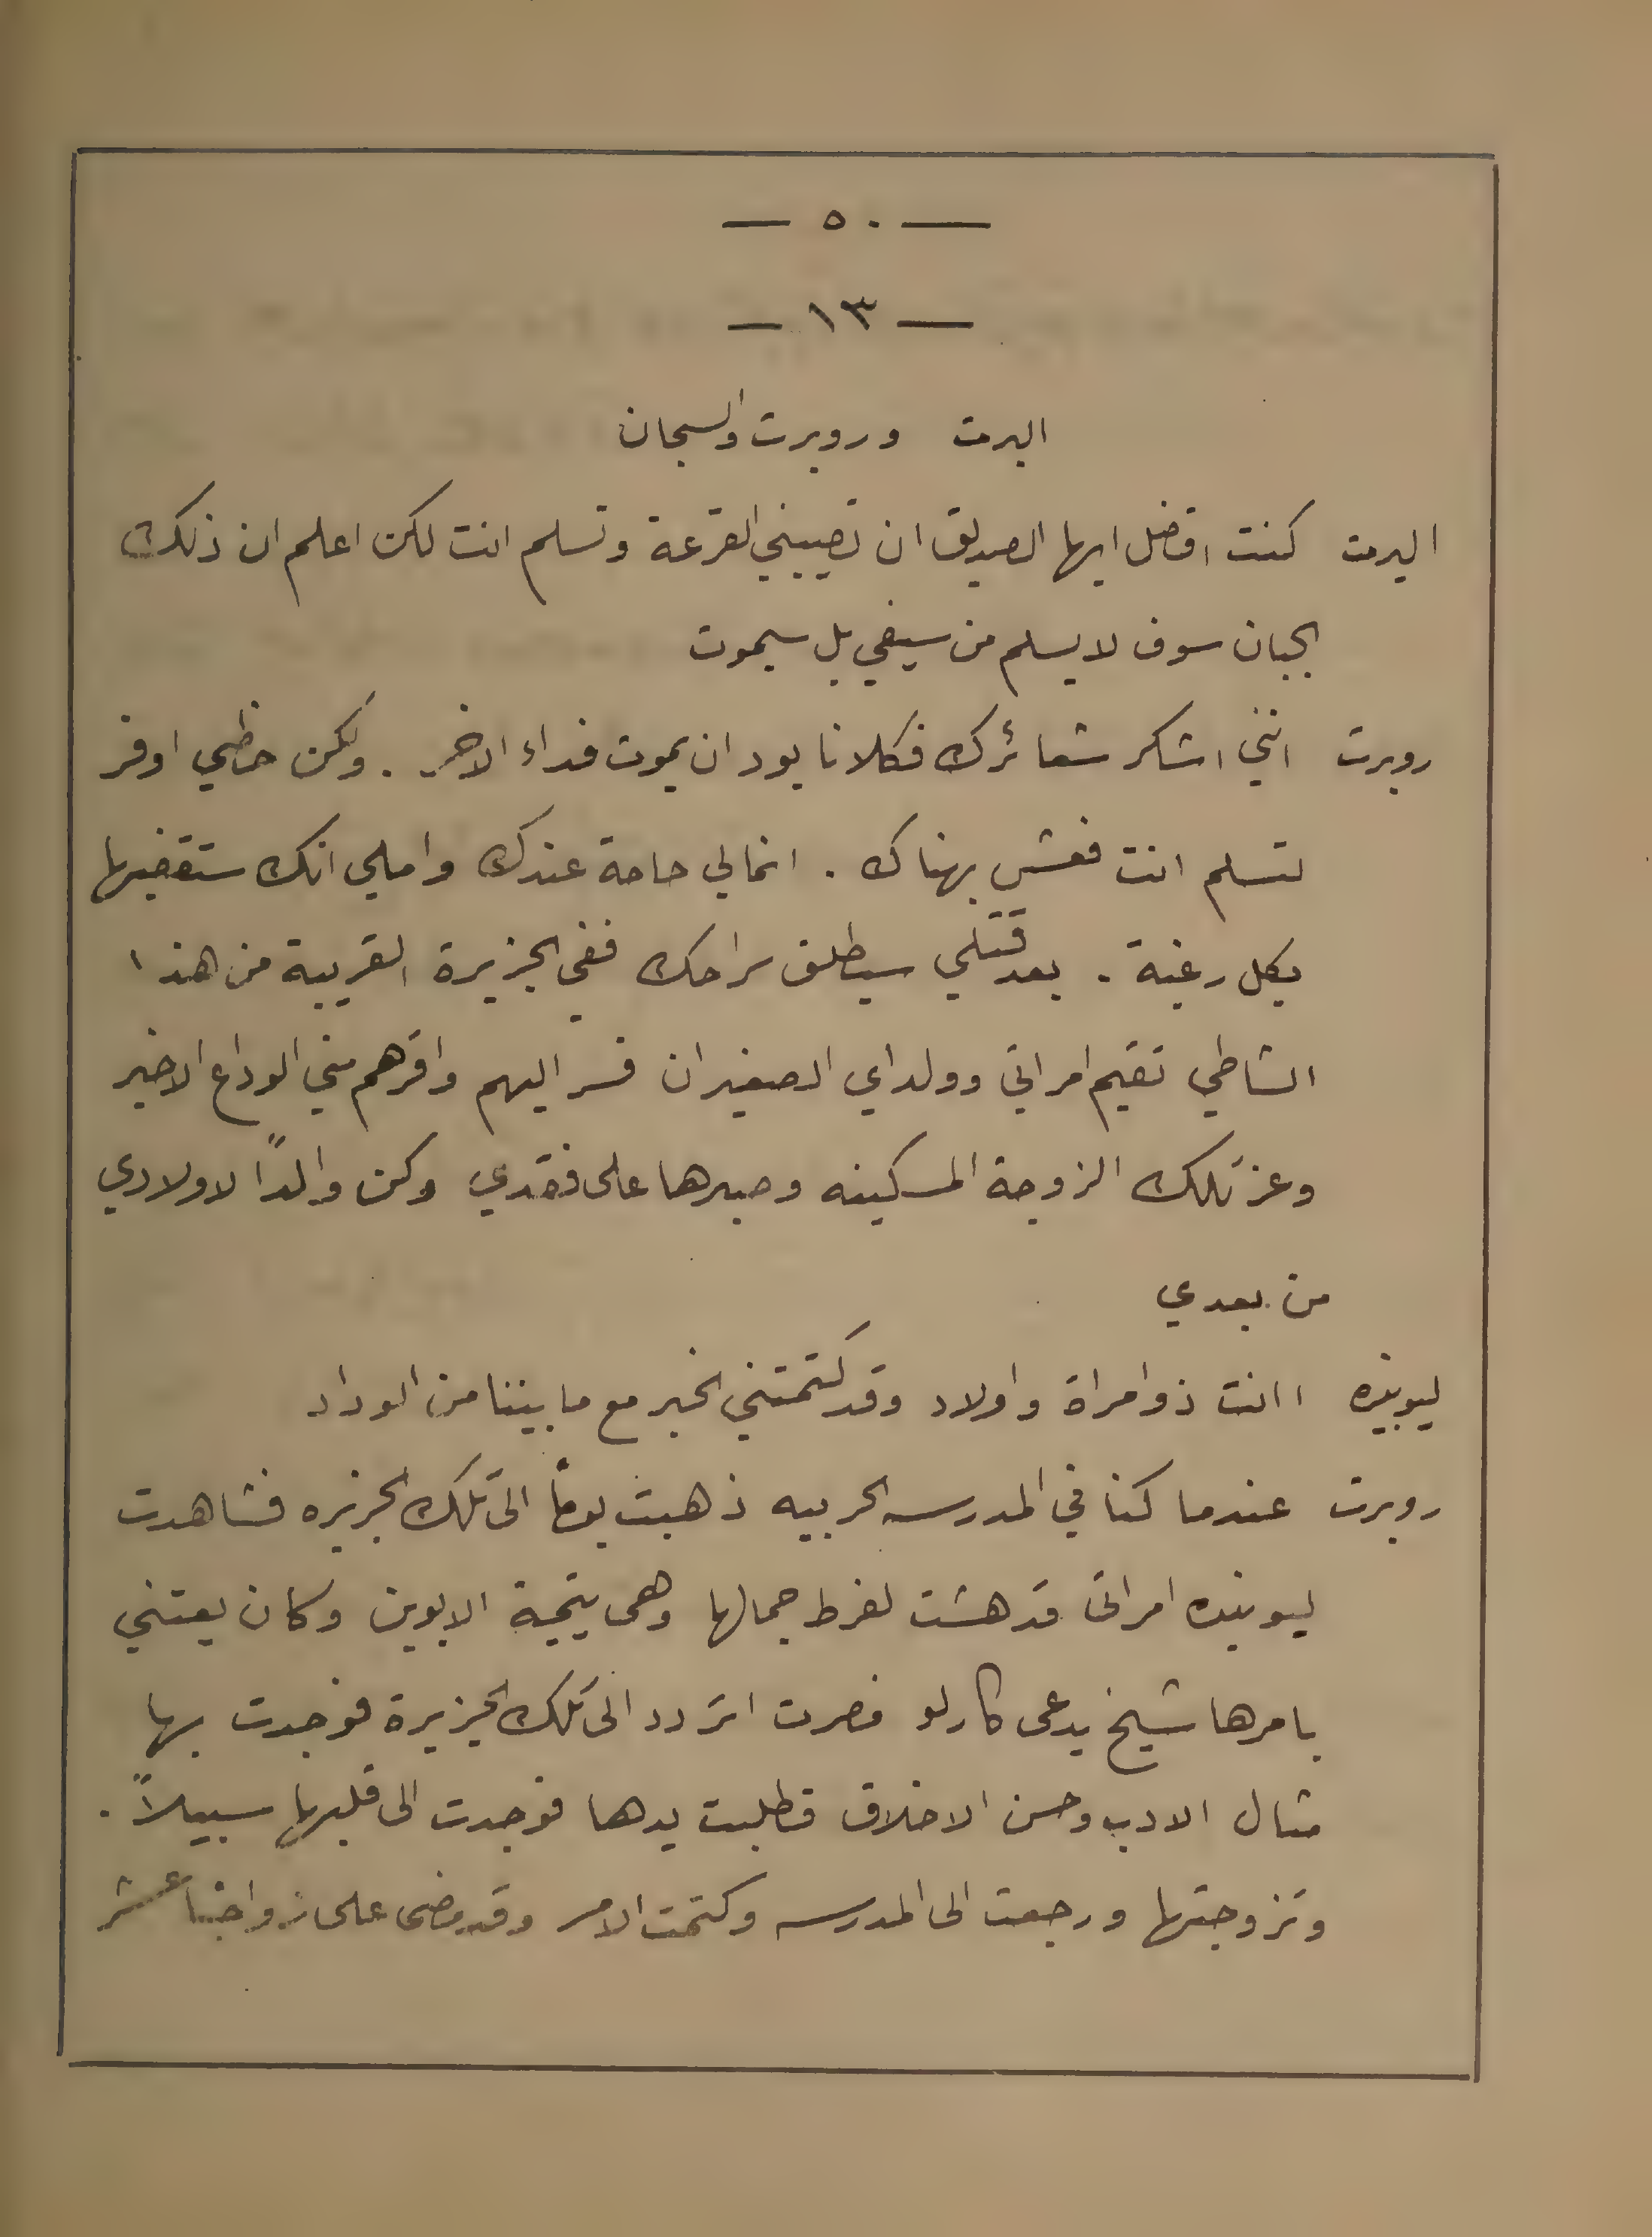 — ٥٠ —
— ١٣ —
البرت وروبرت والسجان
البرت كنت افضل ايها الصديق ان تصيبني القرعة وتسلم انت لكن اعلم ان ذلك
الجبان سوف لا يسلم من سيفي بل سيموت
روبرت انني اشكر شعائرك فكلانا يود ان يموت فداء الاخر . ولكن حظي اوفر
لتسلم انت فعش بهناك . انما لي حاجة عندك واملي انك ستقضيها
بكل رغبة . بعد قتلي سيطلق سراحك ففي الجزيرة القريبة من هذا
الشاطي تقيم امراتي وولداي الصغيران فسر اليهم واقرهم مني الوداع الاخير
وعز تلك الزوجة المسكينه وصبرها على فقدي وكن والداً لاولادي
من بعدي
اانت ذو امراة واولاد وقد كتمتني الخبر مع ما بيننا من الوداد
روبرت عندما كنا في المدرسه الحربيه ذهبت يوماً الى تلك الجزيره فشاهدت
امراتي فدهشت لفرط جمالها وهي يتيمة الابوين وكان يعتني
بامرها شيخ يدعى كارلو فصرت اتردد الى تلك الجزيرة فوجدت بها
مثال الادب وحسن الاخلاق فطلبت يدها فوجدت الى قلبها سبيلاً .
وتزوجتها ورجعت الى المدرسه وكتمت الامر وقد مضى على زواجنا عشر